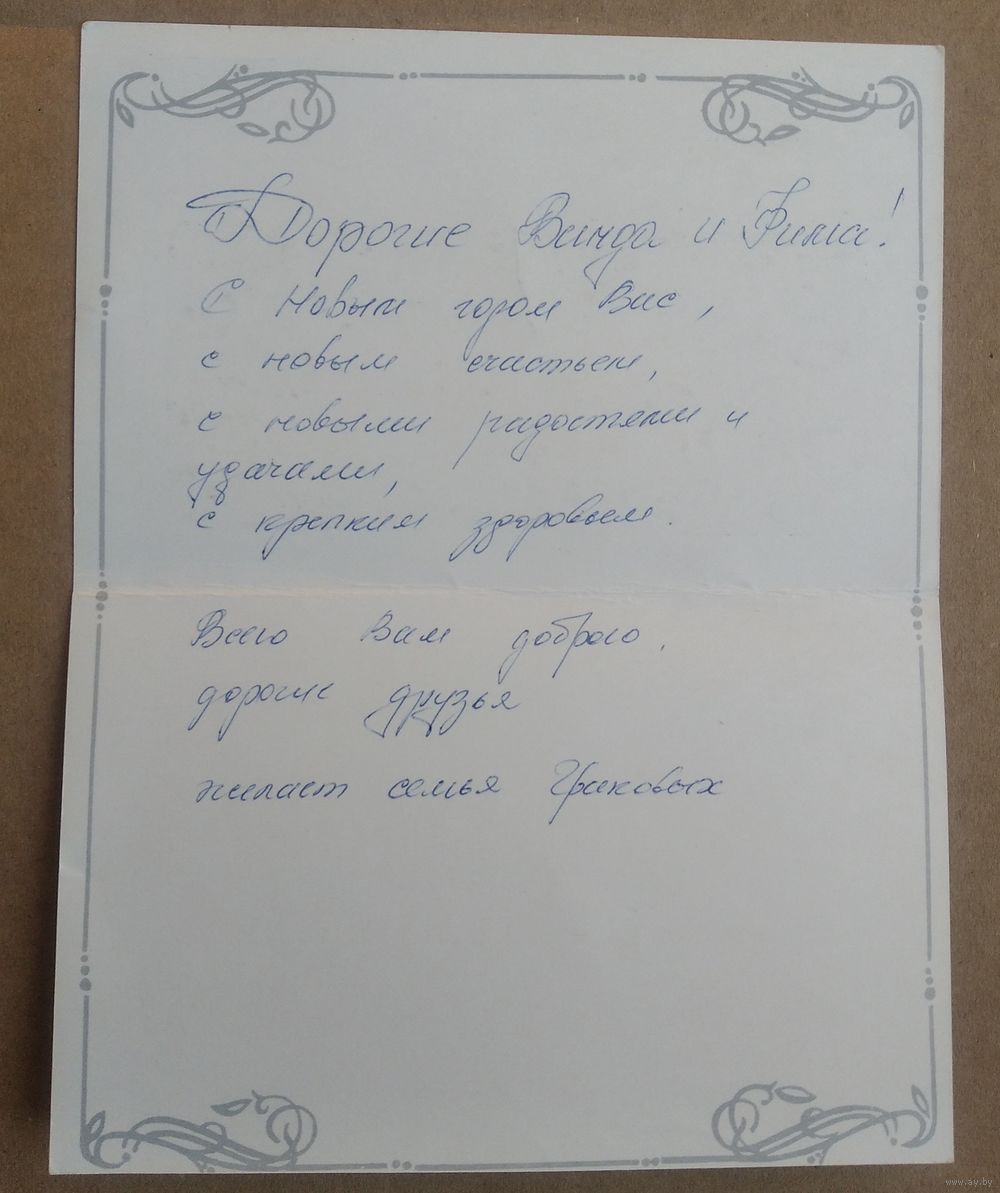 Дорогие Ванда и Фима!
С Новым годом Вас,
с новым счастьем,
с новыми радостями и
удачами,
с крепким здоровьем.
Всего Вам доброго,
дорогие друзья
желает семья Граковых
www.ay.by